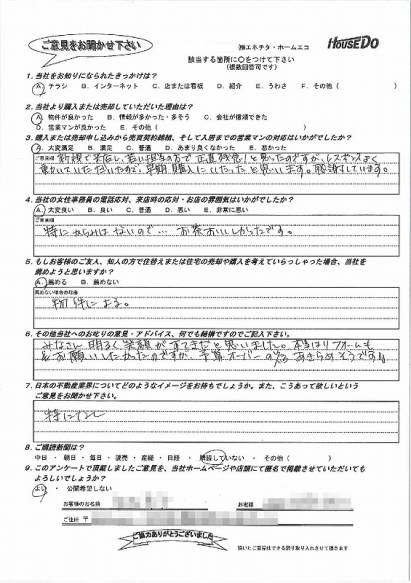 ご意見をお聞かせ下さい
㈱エネチタ・ホームエコ
HouseDo
該当する箇所に○をつけて下さい
(複数回答可です)
1. 当社をお知りになられたきっかけは?
A. チラシ B. インターネット C. 店または看板 D. 紹介 E. うわさ F. その他( )
2. 当社より購入または売却していただいた理由は?
A. 物件が良かった B. 情報が多かった・多そう C. 会社が信頼できた
D. 営業マンが良かった E. その他( )
3. 購入または売却申し込みから売買契約締結、そして入居までの営業マンの対応はいかがでしたか?
A. 大変満足 B. 満足 C. 普通 D. あまり良くなかった E. 悪かった
ご意見欄
新規で来店し、若い担当の方で正直残念!と思ったのですが、レスポンスよく
動いていただいたので、早期購入にいたったと思います。感謝しています。
4. 当社の女性事務員の電話応対、来店時の応対・お店の雰囲気はいかがでしたか?
A. 大変良い B. 良い C. 普通 D. 悪い E. 非常に悪い
ご意見欄
特にからみはないので… お茶おいしかったです。
5. もしお客様のご友人、知人の方で住替えまたは住宅の売却や購入を考えていらっしゃった場合、当社を
薦めようと思いますか?
A. 薦める B. 薦めない
薦めない場合の理由
物件による。
6. その他当社へのお叱りの意見・アドバイス、何でも結構ですのでご記入下さい。
みなさん明るく、笑顔がすてきだと思いました。本当はリフォームも
お願いしたかったのですが、予算オーバーの為、あきらめそうです
7. 日本の不動産業界についてどのようなイメージをお持ちでしょうか。また、こうあって欲しいという
ご意見をお聞かせ下さい。
特になし
8. ご購読新聞は?
中日 ・ 朝日 ・ 毎日 ・ 読売 ・ 産経 ・ 日経 ・ 購読していない ・ その他( )
9. このアンケートで頂戴しましたご意見を、当社ホームページや店頭にて匿名で掲載させていただいても
よろしいでしょうか?
よい ・ 公開希望しない
お客様のお名前
お名前
ご住所 〒
ご協力ありがとうございました